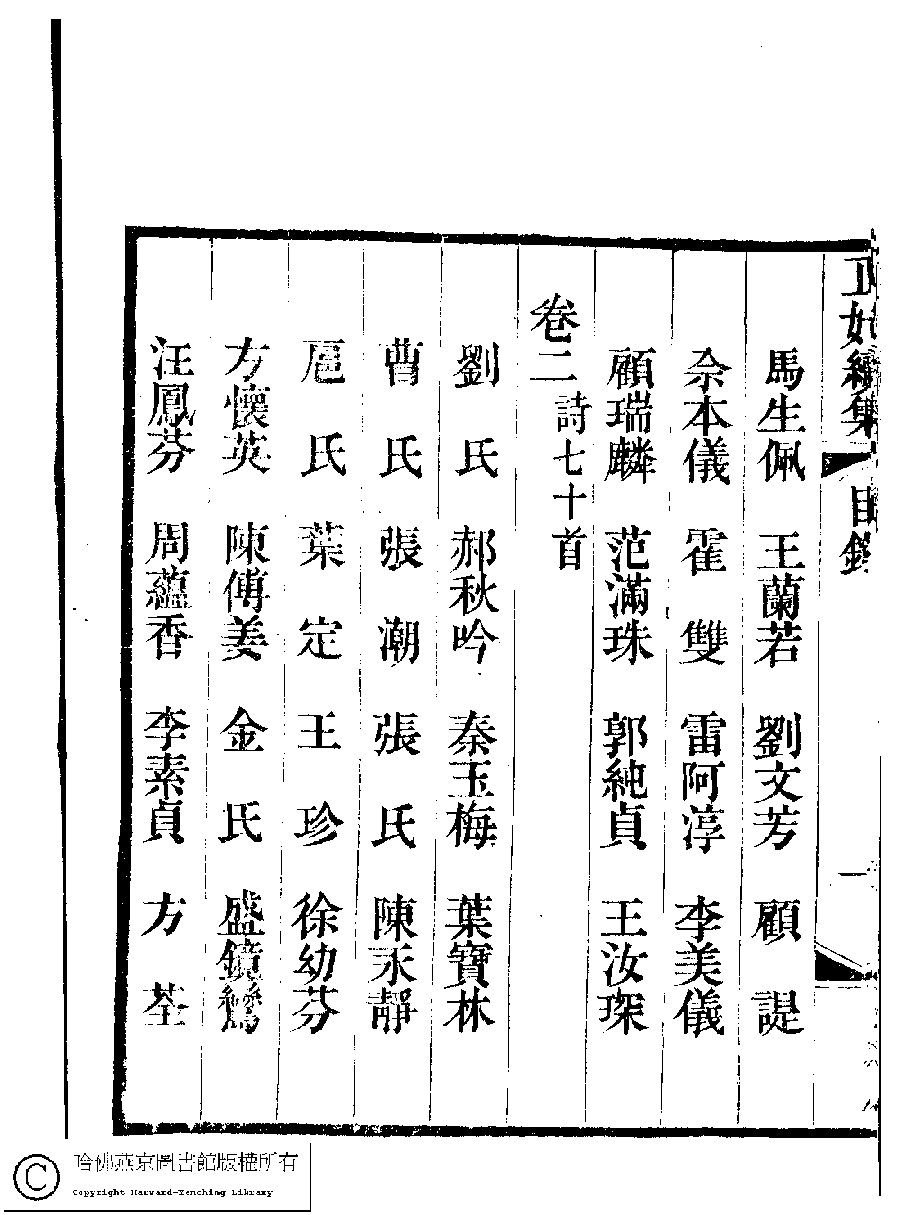 正始續集 目錄 一
馬生佩 王蘭若 劉文芳 顧 諟
佘本儀 霍 雙 雷阿淳 李美儀
顧瑞麟 范滿珠 郭純貞 王汝琛
卷二 詩七十首
劉 氏 郝秋吟 秦玉梅 葉寶林
曹 氏 張 潮 張 氏 陳永靜
扈 氏 葉 定 王 珍 徐幼芬
方懷英 陳傳姜 金 氏 盛鏡鸞
汪鳳芬 周蘊香 李素貞 方 荃
哈佛燕京圖書館版權所有
Copyright Harvard-Yenching Library